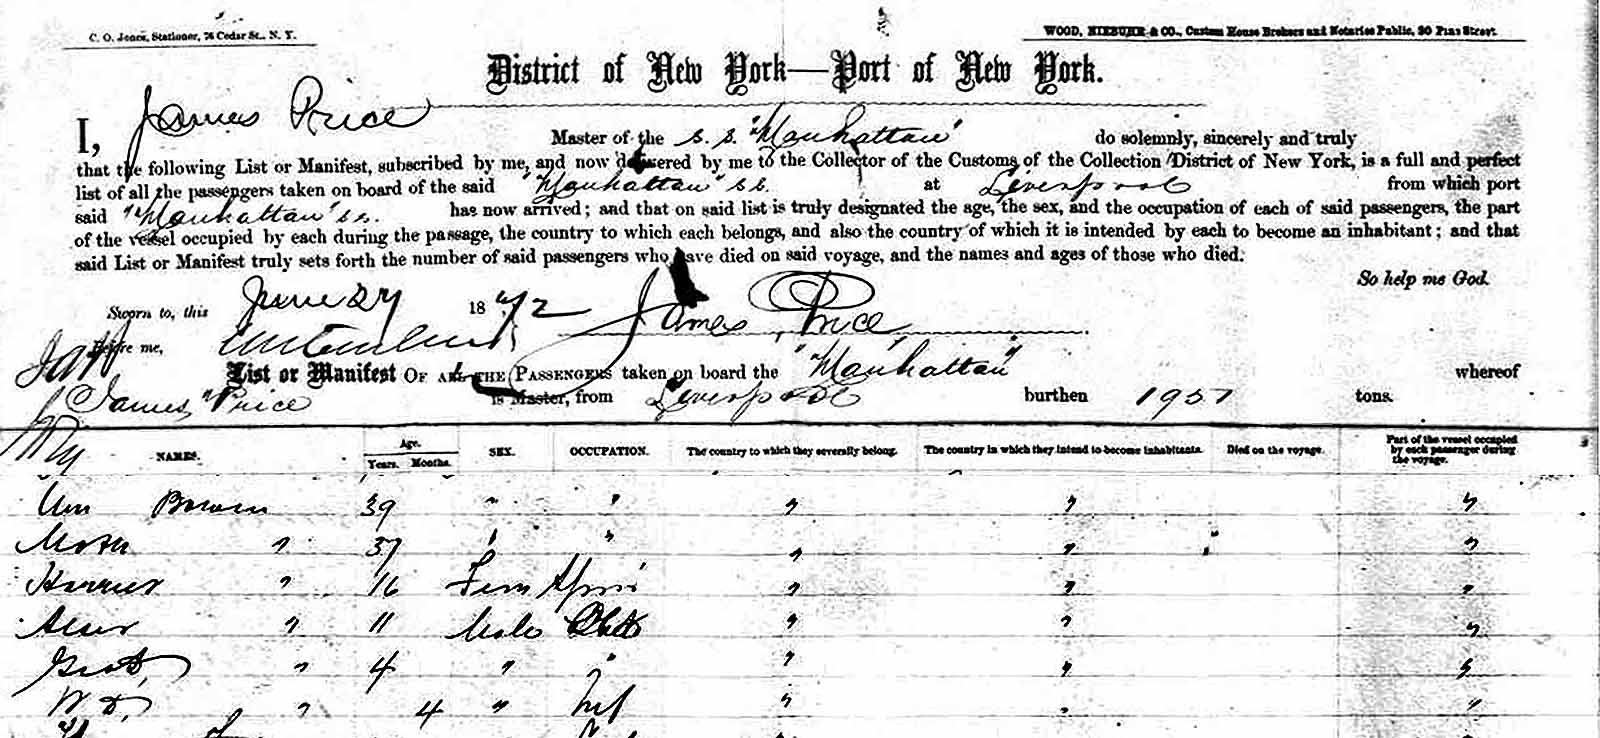 C. O. Jones, Stationer, 76 Cedar St., N. Y.
WOOD, NIEBUHR & CO., Custom House Brokers and Notaries Public, 90 Pine Street.
District of New York—Port of New York.
I, James Price Master of the S. S. "Manhattan" do solemnly, sincerely and truly
that the following List or Manifest, subscribed by me, and now delivered by me to the Collector of the Customs of the Collection District of New York, is a full and perfect
list of all the passengers taken on board of the said "Manhattan" SS. at Liverpool from which port
said "Manhattan" SS. has now arrived; and that on said list is truly designated the age, the sex, and the occupation of each of said passengers, the part
of the vessel occupied by each during the passage, the country to which each belongs, and also the country of which it is intended by each to become an inhabitant; and that
said List or Manifest truly sets forth the number of said passengers who have died on said voyage, and the names and ages of those who died.
So help me God.
Sworn to, this June 27 1872 James Price
Before me,
List or Manifest OF ALL THE PASSENGERS taken on board the "Manhattan" whereof
James Price is Master, from Liverpool burthen tons.
NAMES. Age. Years. Months. SEX. OCCUPATION. The country to which they severally belong. The country in which they intend to become inhabitants. Died on the voyage. Part of the vessel occupied by each passenger during the voyage.
Wm 39 " " " " "
" 37 " " " " "
Harriet " 16 Fem " " "
" 11 Male " " "
" 4 " " " " "
" 4 " Inf " " "